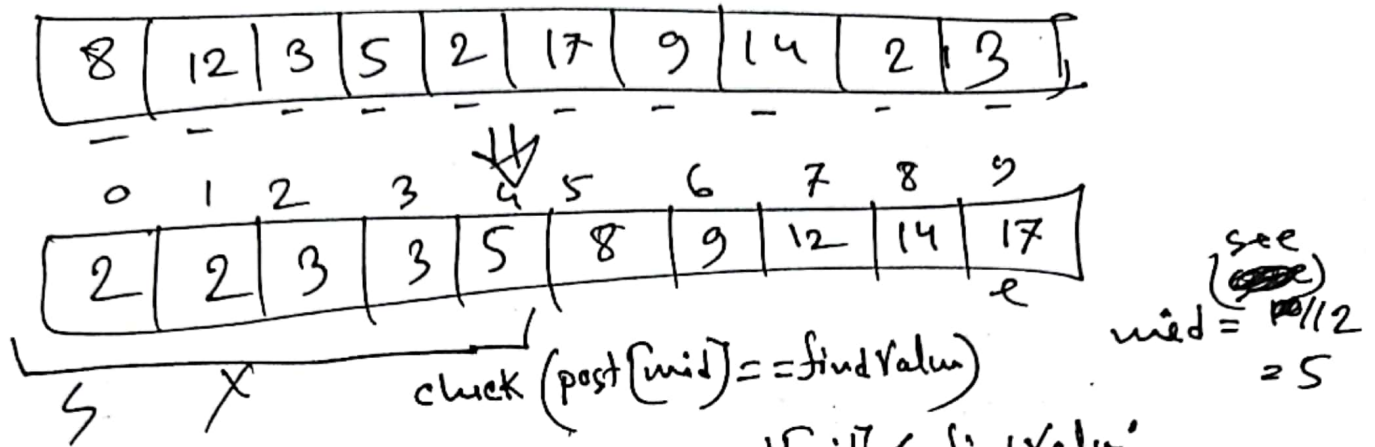 8 12 3 5 2 17 9 14 2 3
0 1 2 3 4 5 6 7 8 9
2 2 3 3 5 8 9 12 14 17
e
mid = //2
= 5
S X
check (post[mid] == findValue)